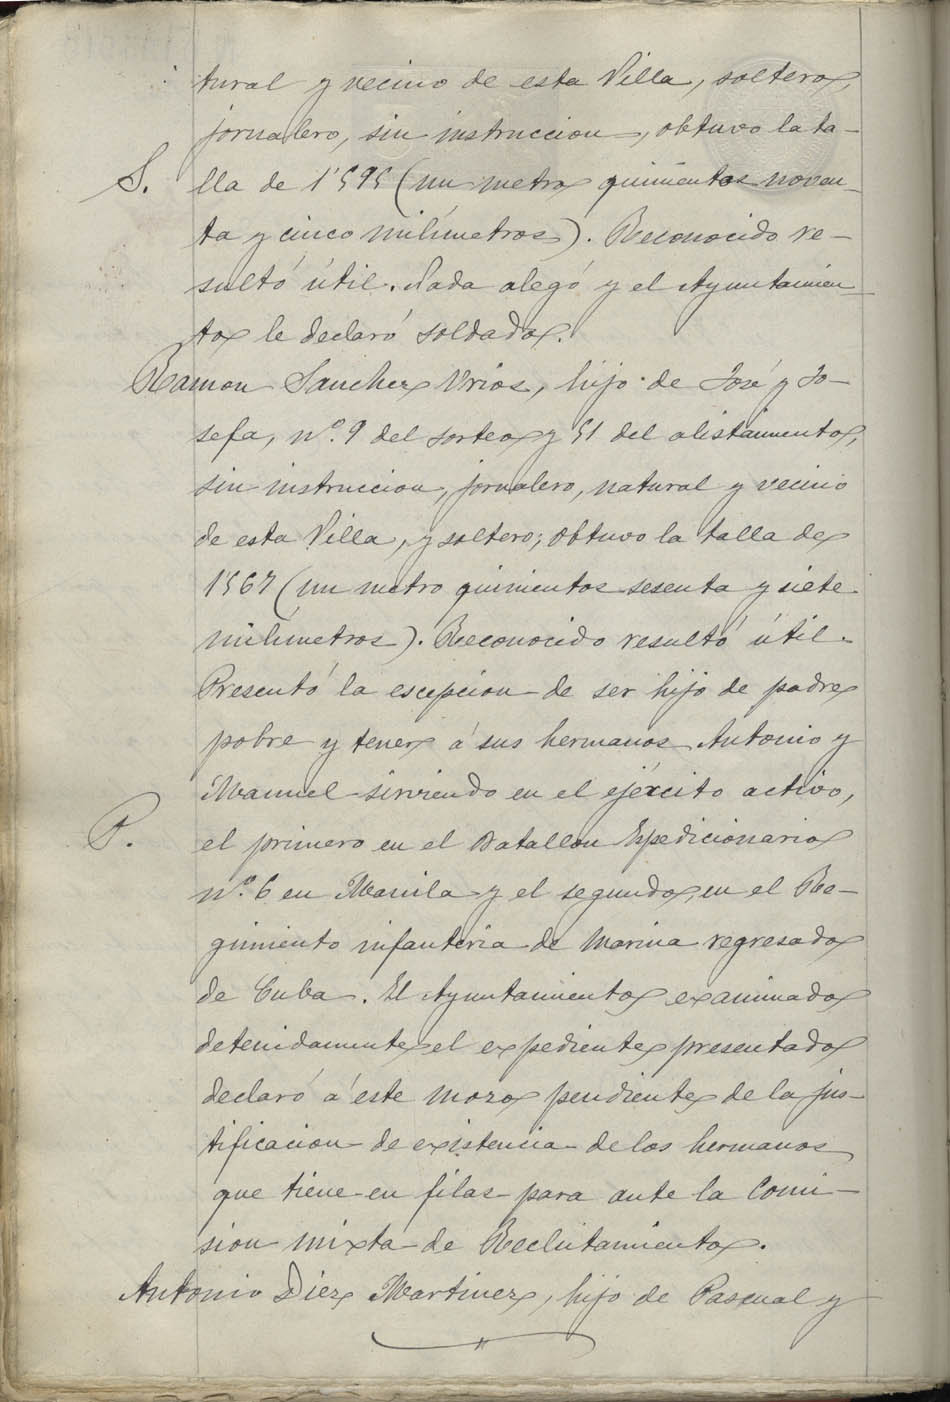 tural y vecino de esta Villa, soltero,
jornalero, sin instruccion, obtuvo la ta-
S. lla de 1'595 (un metro quinientos noven-
ta y cinco milimetros). Reconocido re-
sultó útil. Nada alegó y el Ayuntamien-
to le declaró soldado.
Ramon Sanchez Urios, hijo de José y Jo-
sefa, nº. 9 del sorteo y 51 del alistamiento,
sin instruccion, jornalero, natural y vecino
de esta Villa, y soltero; obtuvo la talla de
1'567 (un metro quinientos sesenta y siete
milimetros). Reconocido resultó útil.
Presentó la escepcion de ser hijo de padre
pobre y tener á sus hermanos Antonio y
Manuel sirviendo en el ejército activo,
P. el primero en el Batallon Espedicionario
nº. 6 en Manila y el segundo, en el Re-
gimiento infanteria de Marina regresado
de Cuba. El Ayuntamiento examinado
detenidamente el expediente presentado
declaró á este mozo pendiente de la jus-
tificacion de existencia de los hermanos
que tiene en filas para ante la Comi-
sion mixta de Reclutamiento.
Antonio Diez Martinez, hijo de Pascual y